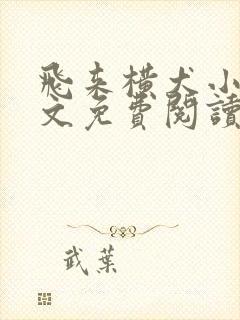 飛来橫犬小
文免費閱讀
武葉